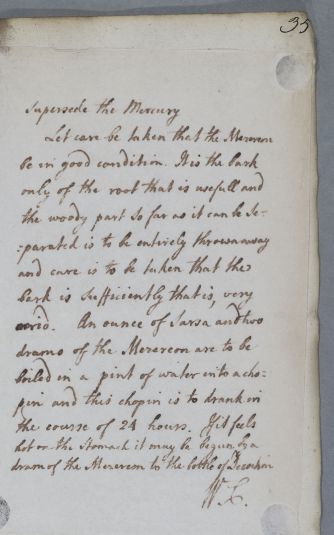 35
Supersede the Mercury
Let care be taken that the Mezereon
be in good condition. It is the bark
only of the root that is usefull and
the woody part so far as it can be se-
-parated is to be entirely thrown away
and care is to be taken that the
bark is sufficiently that is, very
acrid. An ounce of Sarsa and two
drams of the Mezereon are to be
boiled in a pint of water into a cho-
pin and this chopin is to drank in
the course of 24 hours. If it feels
hot on the Stomach it may be begun by a
dram of the Mezereon to the bottle of Decoction
W. C.